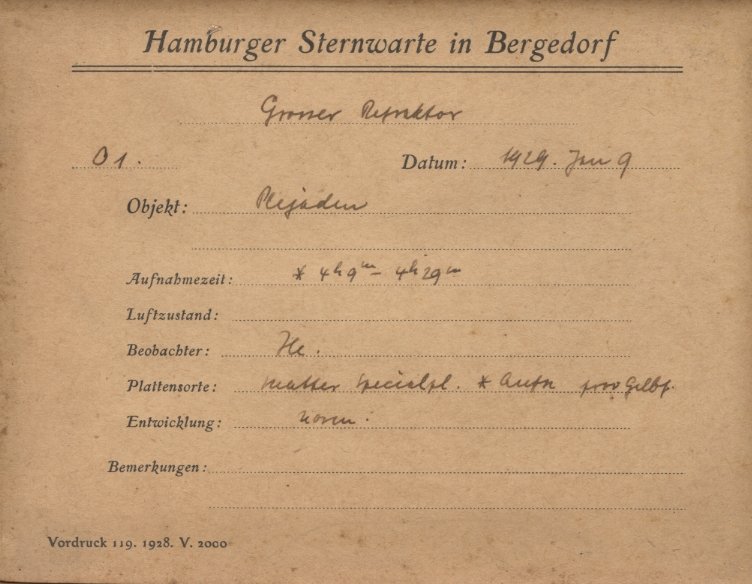 Hamburger Sternwarte in Bergedorf
Grosser Refraktor
01. Datum: 1929. Jan 9
Objekt: Plejaden
Aufnahmezeit: * 4h 9m – 4h 29m
Luftzustand:
Beobachter: He.
Plattensorte: Matter Specialpl. * Aufn Gelbf.
Entwicklung: norm.
Bemerkungen:
Vordruck 119. 1928. V. 2000